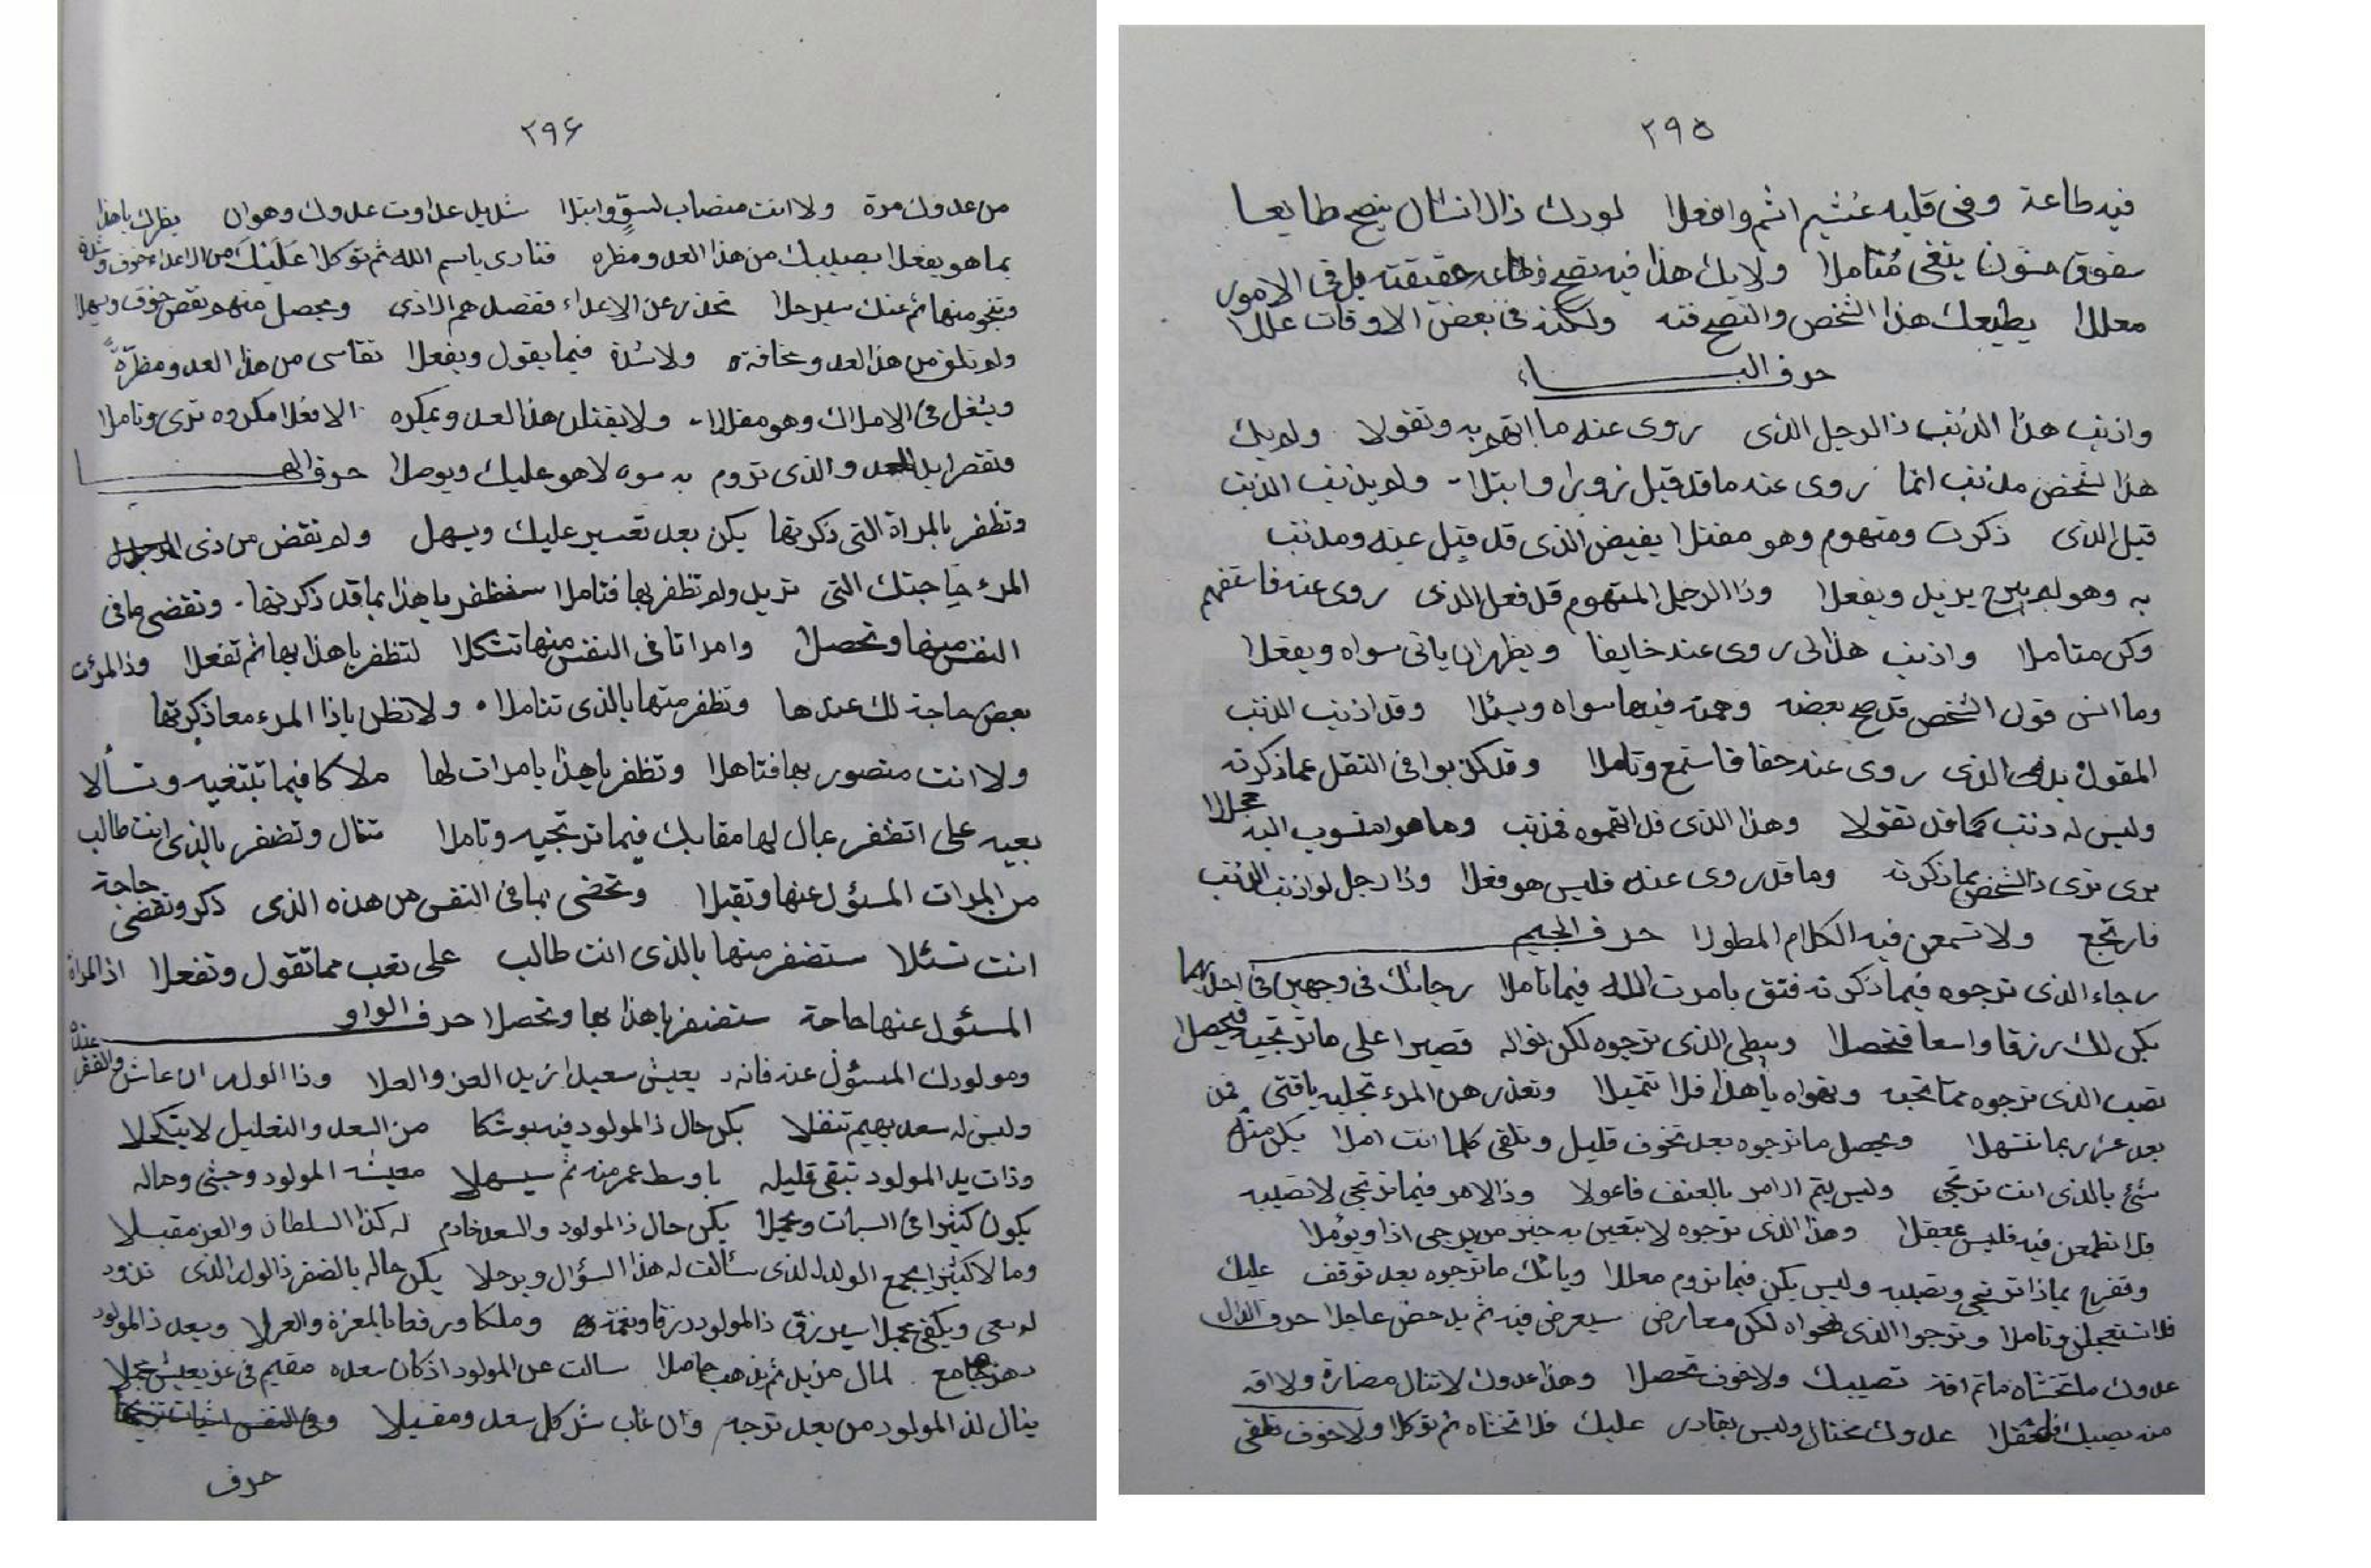 ٢٩٥
فيه طاعة وفى قلبه غش اثم وافعلا لورك ذالانسال ينصح طايعا
سفوق يتغى مُتاملا ولايك هذا فيه نصح حقيقته بل فى الامور
معللا يطيعك هذا الشخص والنصح فنه ولكنه فى بعض الاوقات عللا
حرف البـــاء
واذنب هذا الذنب ذالرجل الذى روى عنه ما اتهم به وتقولا ولم يك
هذا الشخص مذنب انما روى عنه ما قد قيل زورا وابتلا ولم يذنب الذنب
قبل الذى ذكرت ومتهوم وهو مفتلا يفيض الذى قد قيل عنه ومذنب
به وهو لم يزيل ويفعلا وذا الرجل المتهوم قد فعل الذى روى عنه فاستفهم
وكن متاملا واذنب هذا لى روى عنه خايفا ويظهر ان ياتى سواه ويفعلا
وما انس قول الشخص قد صح بعضه وهمته فيها سواه ويسئلا وقد اذنب الذنب
المقول الذى روى عنه حقا فاستمع وتاملا وقد كذبوا فى النقل عما ذكرته
وليس له ذنب كما قد تقولا وهذا الذى قد اتهموه وما هو منسوب اليه
ترى ذالشخص بما ذكرته وما قد روى عنه فليس هو فعلا وذا رجل لو اذنب الذنب
فارتجع ولا تسمعن فيه الكلام المطولا حرف الجيم
رجاء الذى ترجوه فيما ذكرته فثق بامرت الله فيما تاملا رجائك فى وجهين فى احديهما
يكن لك رزقا واسعا فتحصلا ويبطى الذى ترجوه لكن نواله قصيرا على ما ترتجيه فيحصلا
نصيب الذى ترجوه مما تحبه وتهواه يا هذا فلا تتميلا وتعذر من المرء تجليه يا فتى فمن
بعد عزر بما تشتهلا ويحصل ما ترجوه بعد تخوف قليل وتلقى كلما انت املا يكن مثل
شئ بالذى انت ترتجى وليس يتم الامر بالعنف فاعولا وذا الامر فيما ترتجى لا تصيبه
فلا تطمعن فيه فليس محقلا وهذا الذى ترجوه لا يتعين به خير من يرجى اذا ويؤملا
وتفرح بماذا ترتجى وتصيبه وليس يكن فيما تروم معللا وياتك ما ترجوه بعد توقف عليك
فلا تستعجلن وتاملا وترجوا الذى تهواه لكن معارض سيعرض فيه ثم يدحض عاجلا حرف الدال
عدوك ما تخشاه ماثم افة تصيبك ولا خوف تحصلا وهذا عدوك لا تنال مضارة ولا افة
منه يصيبك عدوك مختال وليس بقادر عليك فلا تخشاه ثم توكلا ولا خوف تلقى
٢٩٦
من عدوك مرة ولا انت منصاب لسوّ وابتلا شديل عداوت عدوك وهوان يظرك يا هذا
بما هو يفعلا يصيبك من هذا العدو مظره فنادى باسم الله ثم توكلا عَلَيْكَ من الاعداء خوف وشدة
وتنجو منها ثم عنك سيرحلا تحذر عن الاعداء ففضل هم الاذى ويحصل منهم نقص حقوق ويهملا
ولم تلق من هذا العدو مخافته ولا شدة فيما يقول ويفعلا تقاسى من هذا العدو مظرّةً
ويشغل فى الاملاك وهو مقللا ولا يفتلن هذا العدو ويمكره الا فعلا مكروه ترى وتاملا
وتقصر يد العدو والذى تروم به سوء لا هو عليك ويوصلا حرف الهـــا
وتظفر بالمراة التى ذكرتها يكن بعد تعسير عليك ويسهل ولم تقض من ذى
المرء حاجتك التى تريد ولم تظفر بها فتاملا ستظفر يا هذا بما قد ذكرتها وتقضى ما فى
النفس منها وتحصلا وامراتا فى النفس منها تشكلا لتظفر يا هذا بها ثم تفعلا وذا المرئت
بعض حاجة لك عندها وتظفر متها بالذى تتاملا ولا تظن باذا المرء معا ذكرتها
ولا انت منصور بها فتاهلا وتظفر يا هذا بامرات لها ملاكا فيما تبتغيه وتسألا
بعيه على اتظفر عبال لها مقابك فيما ترتجيه وتاملا تنال وتضفر بالذى انت طالب
من المرات المسئول عنها وتقبلا وتحضى بما فى النفس من هذه الذى ذكر وتقضى حاجة
انت تسئلا ستضفر منها بالذى انت طالب على تعب مما تقول وتفعلا اذ المراة
المسئول عنها حاجة ستضفر يا هذا بها وتحصلا حرف الواو
ومولودك المسؤل عنه فانه يعيش سعيدا نزيل العز والعلا وذا الولد ان عاش والفقر عنده
وليس له سعد بهيم تنقلا يكن حال ذا المولود فيه بوشكا من السعد والتعليل لا يتكلا
وذات يد المولود تبقى قليله باوسط عمر منه ثم سيسهلا معيشه المولود وحشى وحاله
يكون كثيرا فى السبات ويجملا يكن حال ذا المولود والسعد خادم له كذا السلطان والعز مقبلا
ومالا كثيرا يجمع الولد الذى سئالت له هذا السؤال ويرحلا يكن حاله بالضفر ذا الولد الذى تزود
لوسعى ويكفى عجبلا سيرزق ذا المولود رزقا ونعمة وملكا ورفعا بالمعزة والعزلا ويعد ذا المولود
جامع لمال مزيل ثم يذهب حاصلا سالت عن المولود اذ كان سعده مقيم فى عز يعيش مجملا
ينال لذا المولود من بعد ترجه وان غاب شل كل سعد ومقبلا
حرف